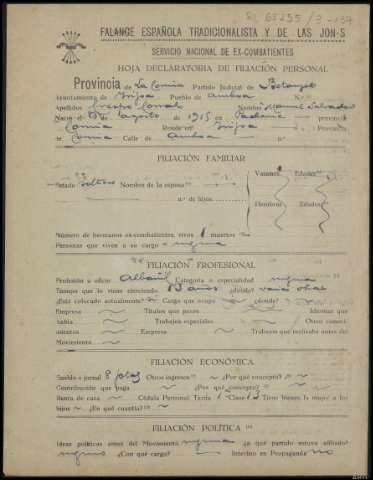 65255/3-157
FALANGE ESPAÑOLA TRADICIONALISTA Y DE LAS JON-S
SERVICIO NACIONAL DE EX-COMBATIENTES
HOJA DECLARATORIA DE FILIACIÓN PERSONAL
Provincia de La Coruña Partido Judicial de Betanzos
Ayuntamiento de Irijoa Pueblo de Ambroa N.º
Apellidos Crespo Corral Nombre Manuel Salvador
Nació el de Agosto de 1915 en provincia
Coruña Reside en Irijoa Provincia
Coruña Calle de Ambroa
FILIACIÓN FAMILIAR
Estado Soltero Nombre de la esposa
Varones Edades
n.º de hijos
Hembras Edades
Número de hermanos ex-combatientes, vivos 1 muertos
Personas que viven a su cargo ninguna
FILIACIÓN PROFESIONAL
Profesión u oficio Albañil Categoría o especialidad ninguna
Tiempo que lo viene ejerciendo años ¿dónde? varias obras
¿Está colocado actualmente? si Cargo que ocupa ¿dónde?
Empresa Títulos que posee Idiomas que
habla Trabajos especiales Otros conoci-
mientos Empresa Trabajos que realizaba antes del
Movimiento
FILIACIÓN ECONÓMICA
Sueldo o jornal 8 ptas Otros ingresos ¿Por qué concepto?
Contribución que paga ¿Por qué concepto?
Renta de casa Cédula Personal Tarifa 1 Clase 13 Tiene bienes la mujer o los
hijos ¿En qué cuantía?
FILIACIÓN POLÍTICA
Ideas políticas antes del Movimiento ninguna ¿a qué partido estuvo afiliado?
ninguno ¿Con qué cargo? Intervino en Propaganda no